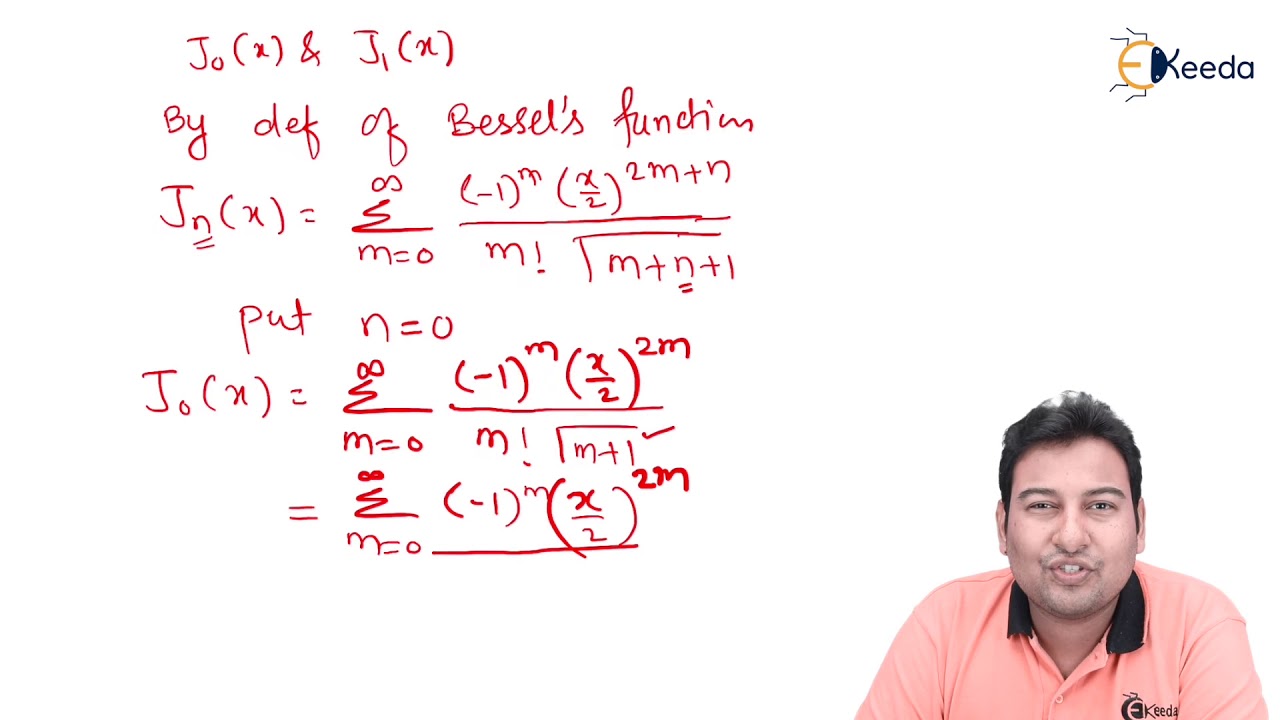 J₀(x) & J₁(x)
EKeeda
By def of Bessel's function
Jₙ(x) = ∞ Σ m=0 (-1)^m (x/2)^2m+n / m! Γm+n+1
put n=0
J₀(x) = ∞ Σ m=0 (-1)^m (x/2)^2m / m! Γm+1 ✓
= ∞ Σ m=0 (-1)^m (x/2)^2m
EKeeda